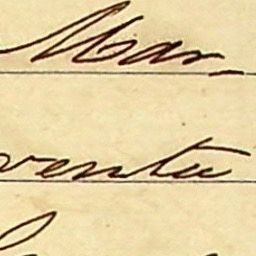 Mar_
venta